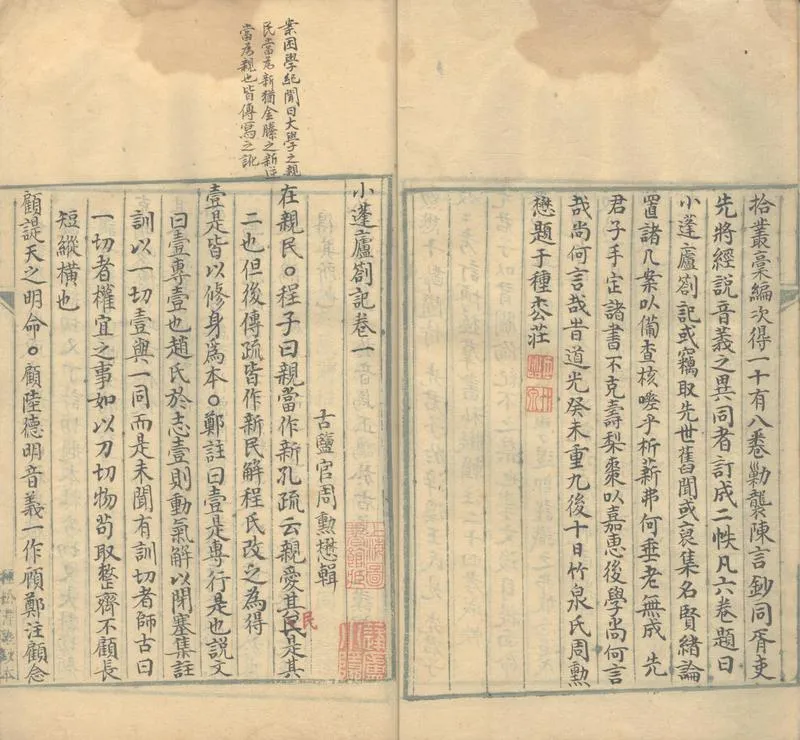 拾叢藁編次得一十有八卷勦襲陳言鈔同胥吏
先將經說音義之異同者訂成二帙凡六卷題曰
小蓬廬劄記或竊取先世舊聞或裒集名賢緒論
置諸几案以備查核噫乎析薪弗何垂老無成 先
君子手定諸書不克壽梨棗以嘉惠後學尚何言
哉尚何言哉旹道光癸未重九後十日竹泉氏周勳
懋題于種柗莊
案困學紀聞曰大學之親
民當為新猶金縢之新注
當為親也皆傳寫之訛
小蓬廬劄記卷一
古鹽官周勳懋輯
在親民。程子曰親當作新孔疏云親愛其民是其
民
二也但後傳疏皆作新民解程氏改之為得
壹是皆以修身為本。鄭註曰壹是專行是也說文
曰壹專壹也趙氏於志壹則動氣解以閉塞集註
訓以一切壹與一同而是未聞有訓切者師古曰
一切者權宜之事如以刀切物苟取整齊不顧長
短縱橫也
顧諟天之明命。顧陸德明音義一作頋鄭注顧念